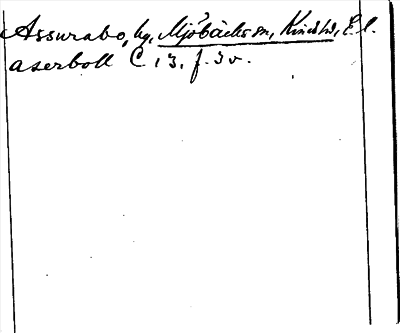 Assurabo, hg, Mjöbäcks sn, Kinds hd, Äl.
aserboll C 13, f. 3v.